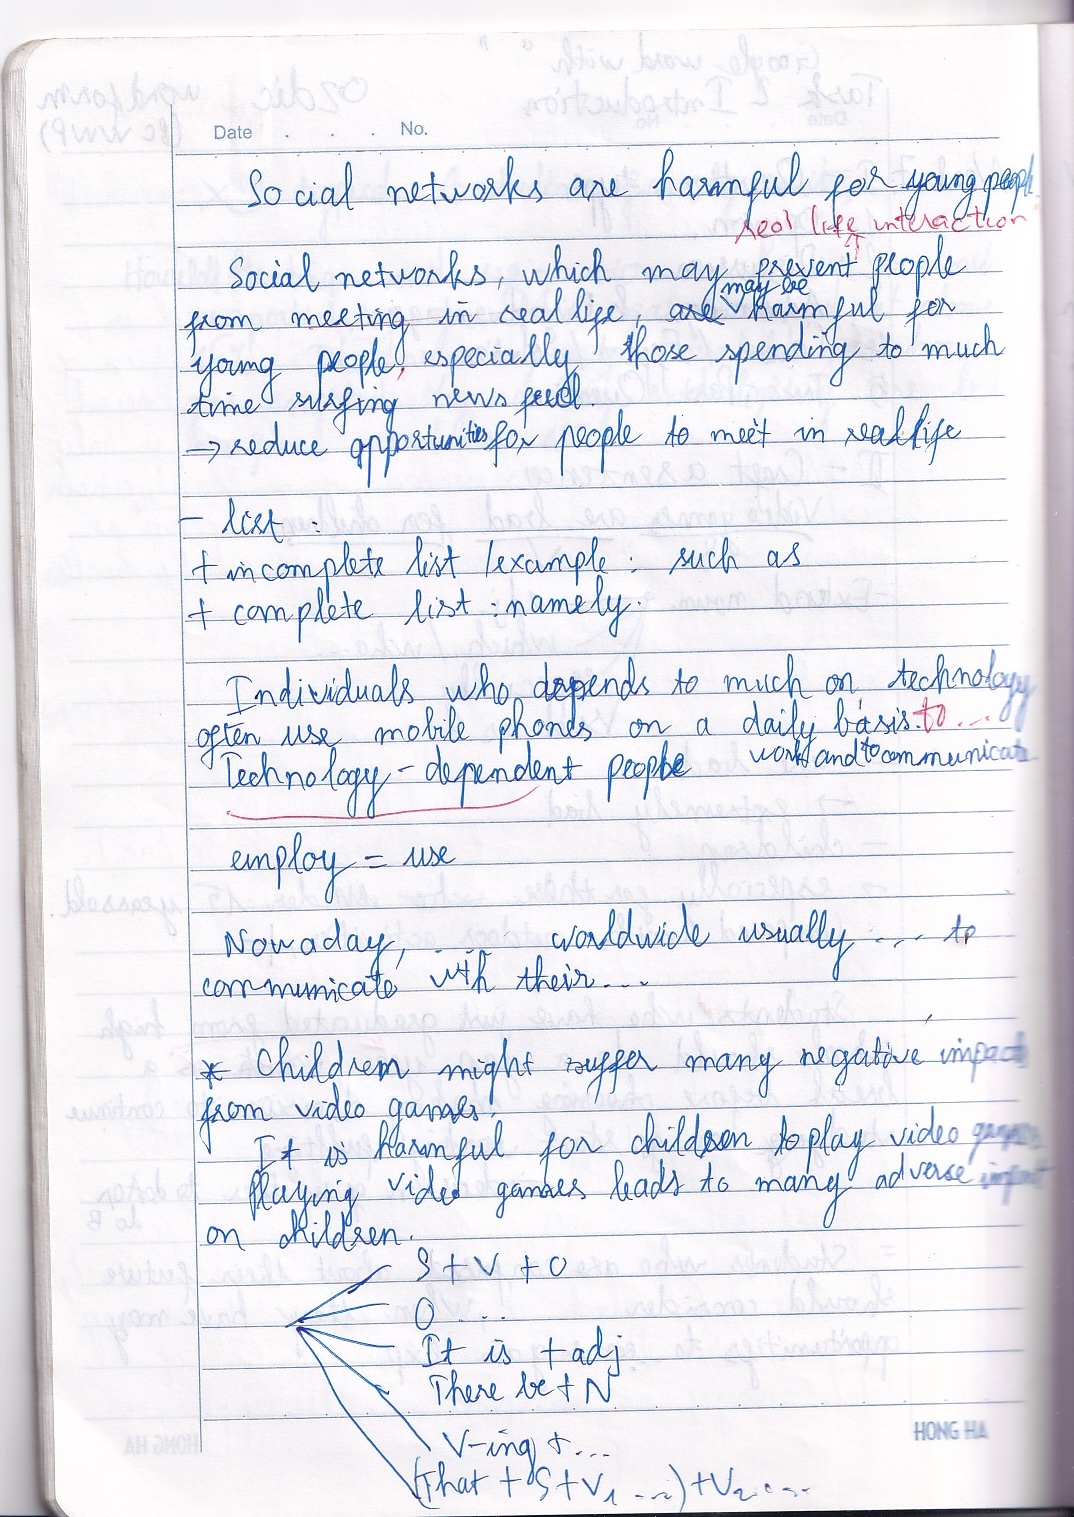 Date . . . No.
Social networks are harmful for young people
real life interaction
Social networks, which may prevent people
may be
from meeting in real life, are harmful for
young people, especially those spending to much
time surfing news feed.
→ reduce opportunities for people to meet in real life
- list :
+ incomplete list /example : such as
+ complete list : namely.
Individuals who depends to much on technology
often use mobile phones on a daily basis. to ...
Technology - dependent people work and to communicate
employ = use
Nowaday, ... worldwide usually ... to
communicate with their...
* Children might suffer many negative impact
from video games.
It is harmful for children to play video games
Playing video games leads to many adverse impact
on children.
S + V + O
O ...
It is + adj
There be + N
V-ing + ...
(That + S + V1 ...) + V2 ...
HONG HA